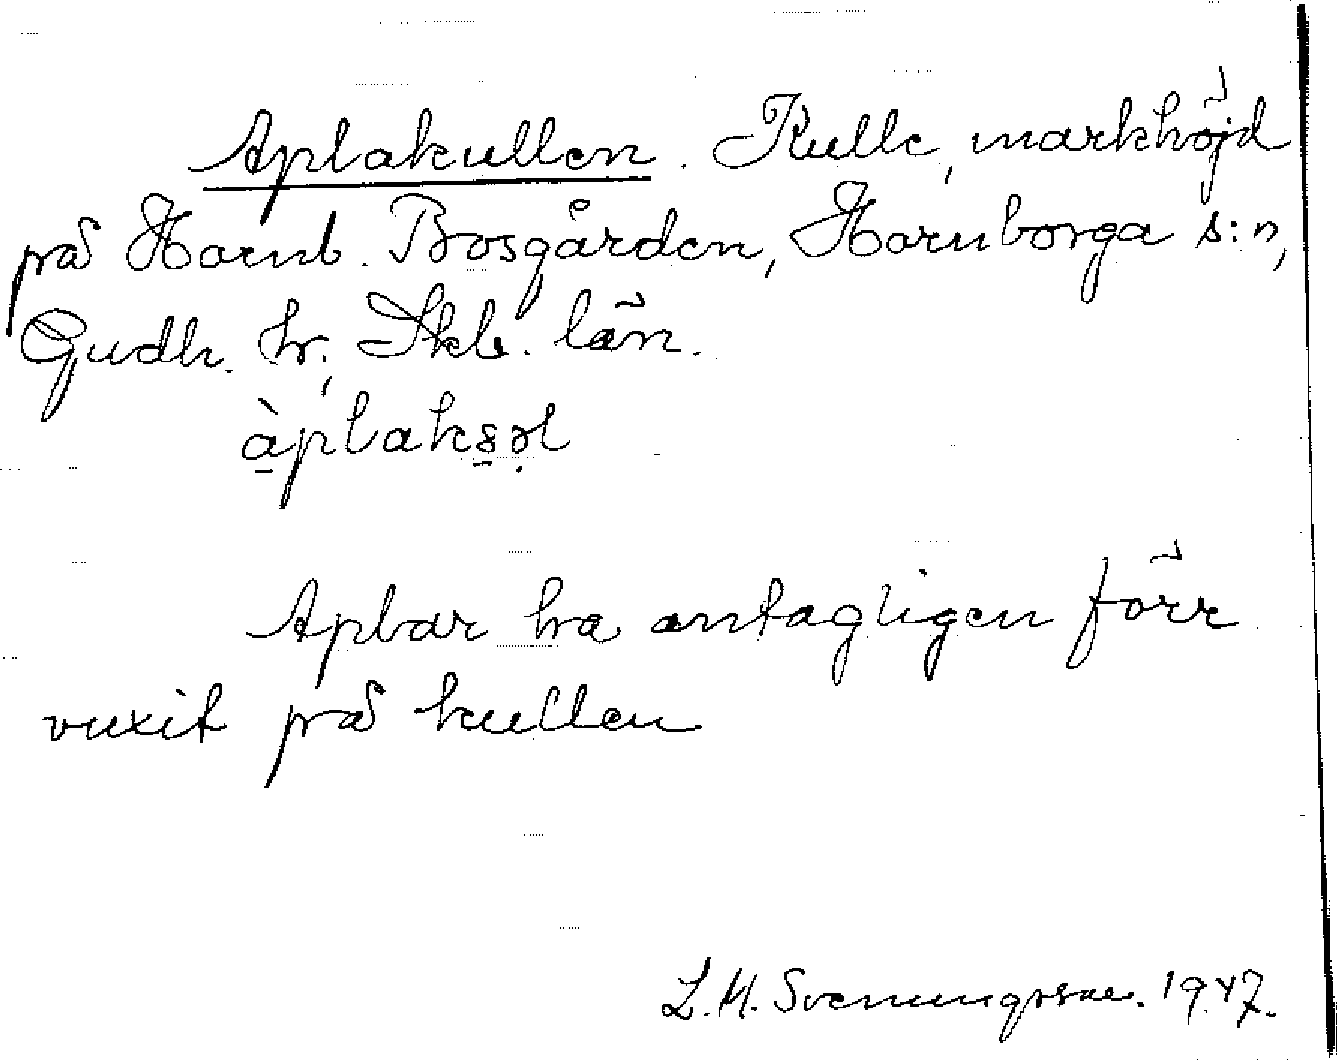 Aplakullen. Kulle, markhöjd
på Hornb. Bosgården, Hornborga s:n,
Gudh. hr, Skb. län.
àplaks̱ə̣l
Aplar ha antagligen förr
vuxit på kullen
L.H. Svenungsson. 1947.